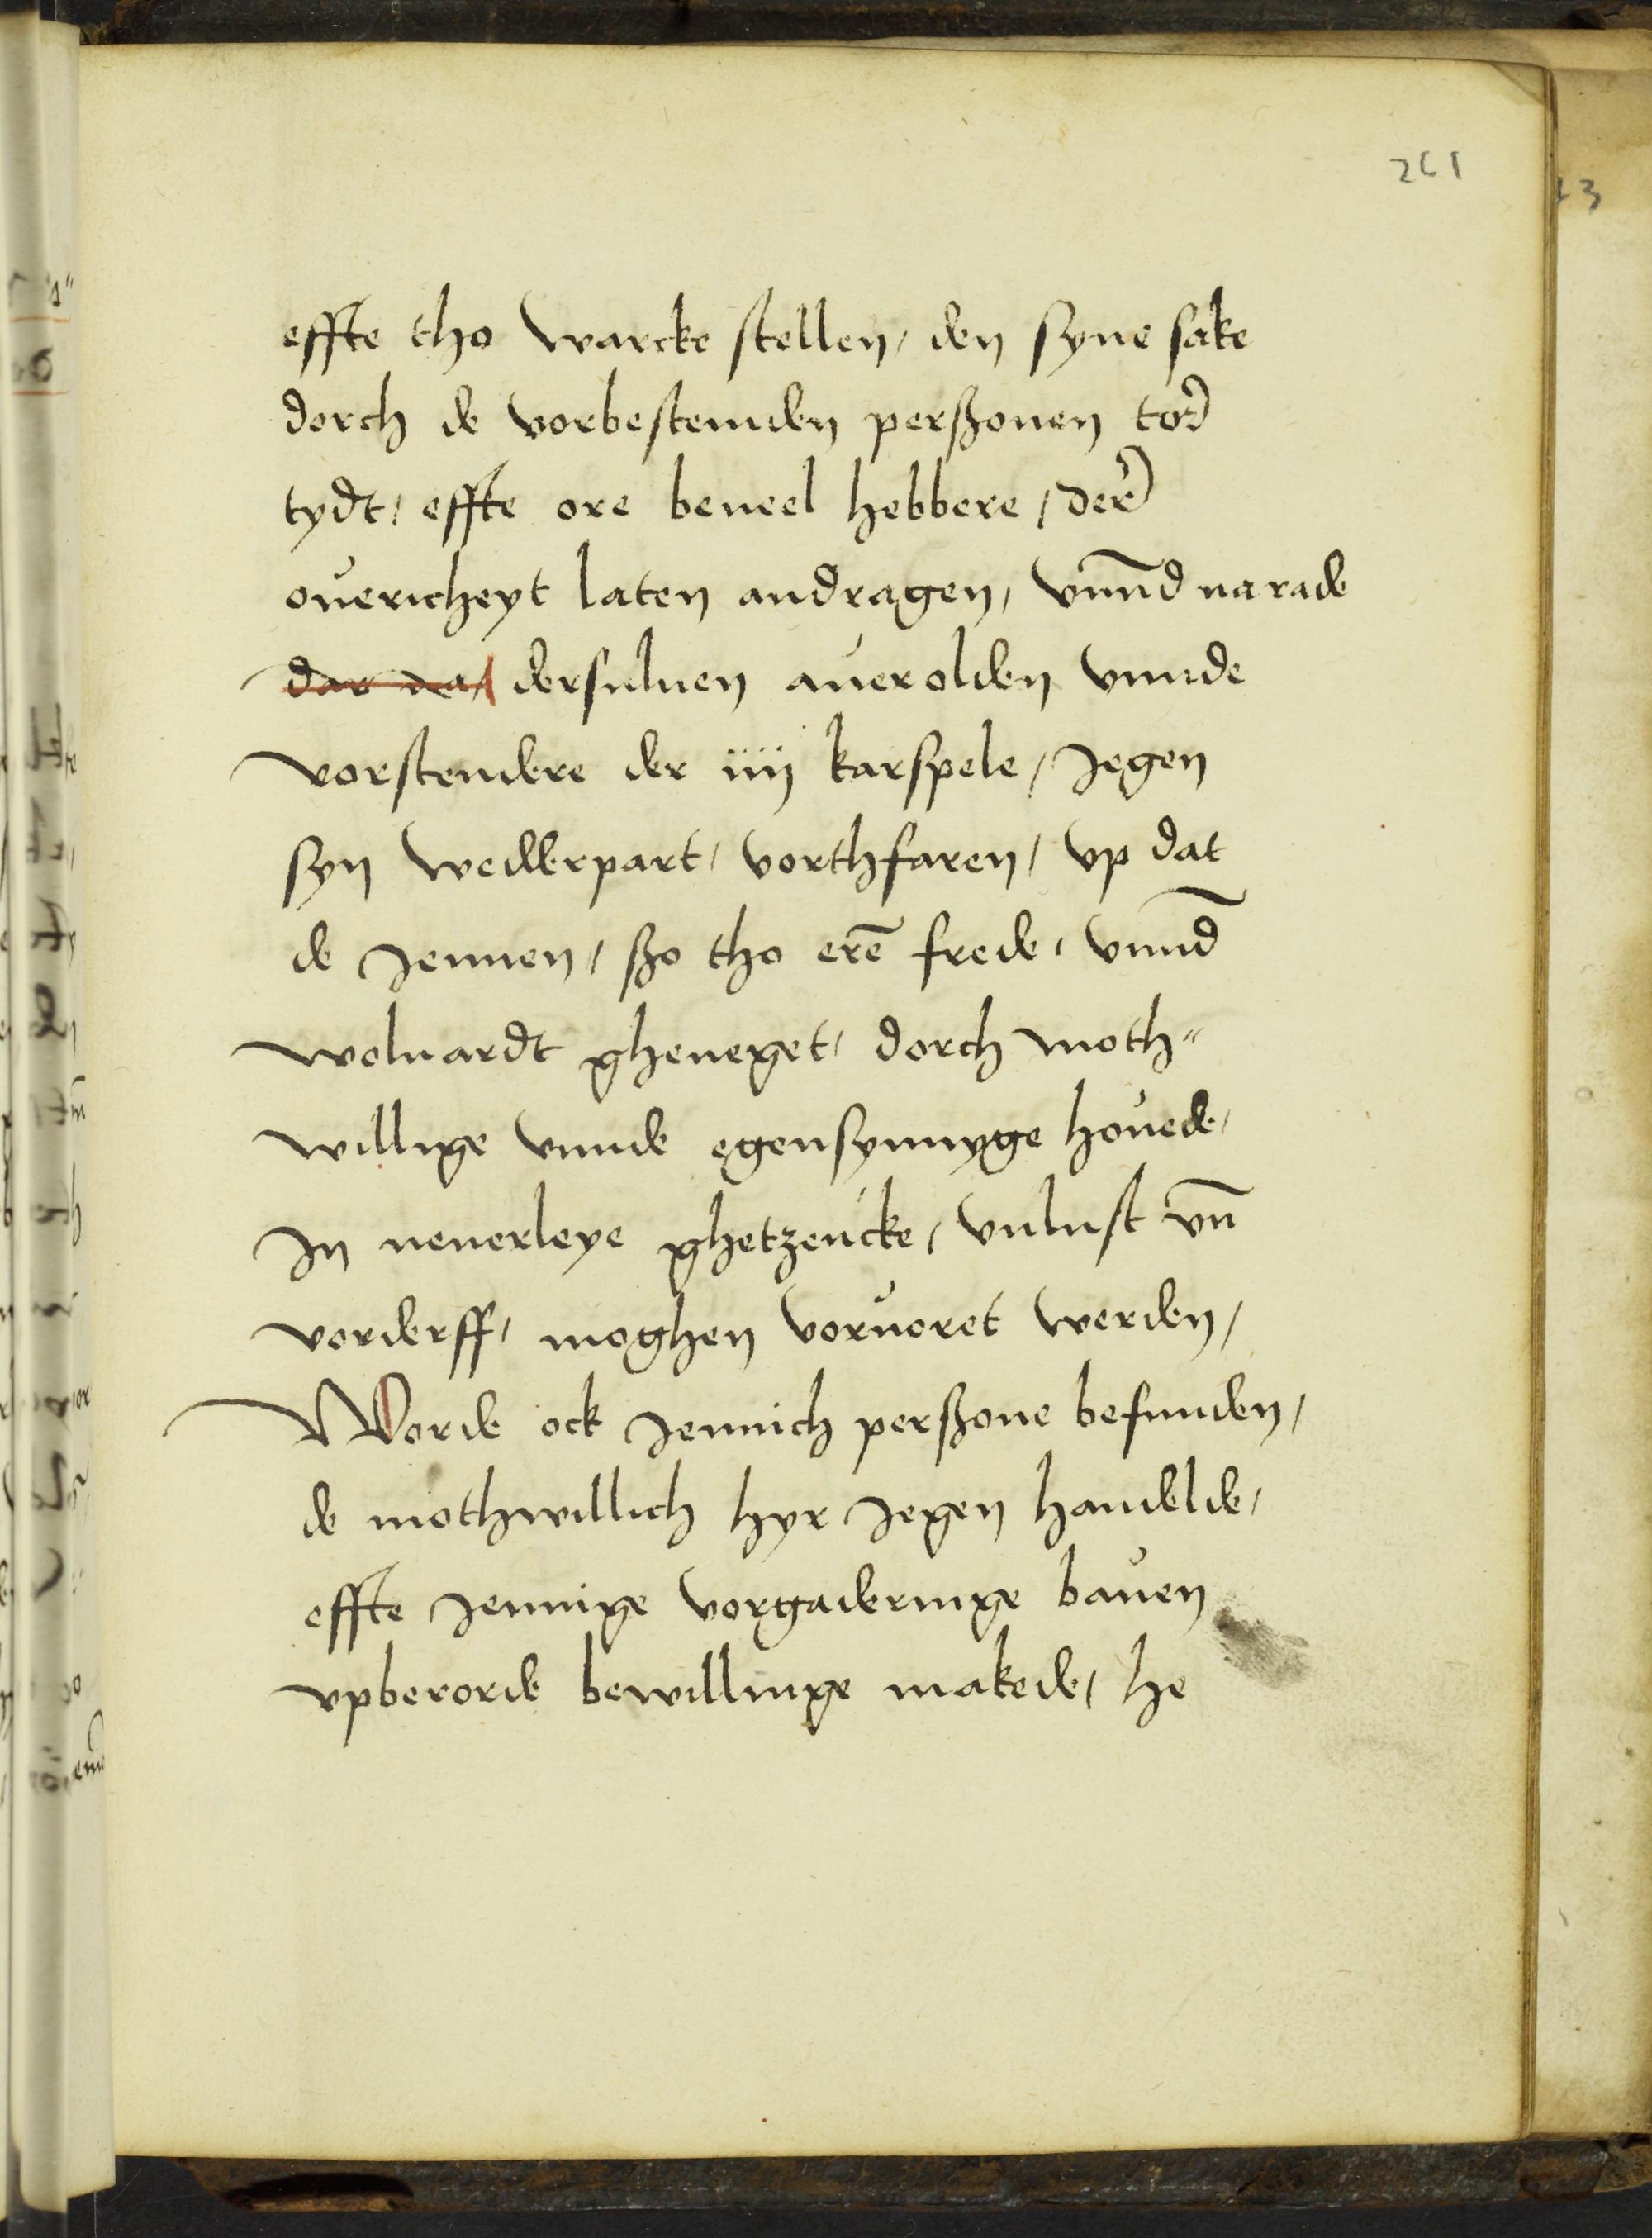 261
effte tho warcke stellen, den syne sake
dorch de vorbestemden perßonen tor
tydt, effte ore beueel hebbere, der
ouericheyt laten andragen, vnnd na rade
dar na dersuluen auerolden vnnde
vorstendere der iiij karspele, Jegen
syn wedderpart, vorthfaren, vp dat
de Jennen, ßo tho erē frede, vnnd
woluardt gheneget, dorch moth"
willige vnnde egensynnyge houede,
In nenerleye ghetzencke, vnlust vn̄
vorderff, moghen voruoret werden,
Worde ock Jennich perßone befunden,
de mothwillich hyr Jegen handelde,
effte Jennige vorgaderinge bauen
vpberorde bewillinge makede, he